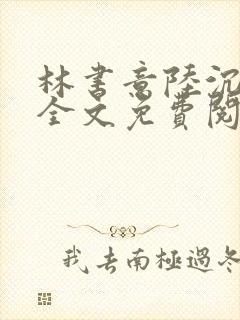 林書意陸沉
全文免費閱
我去南極過冬